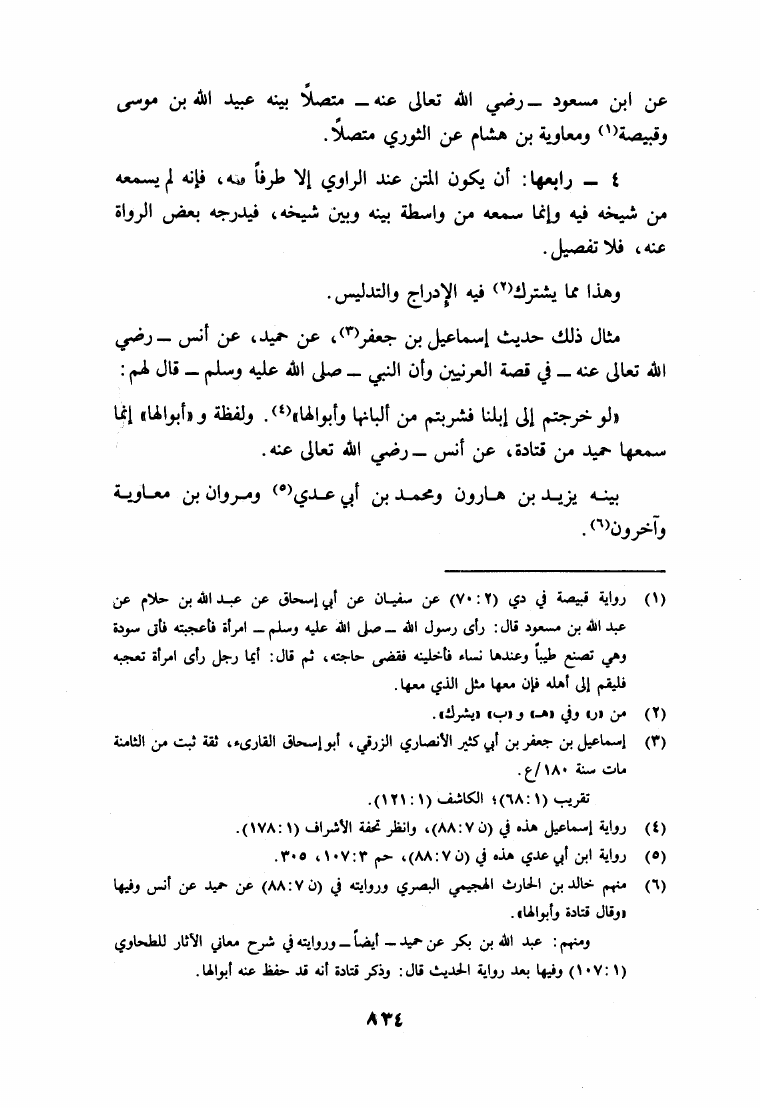 عن ابن مسعود – رضي الله تعالى عنه – متصلاً بينه عبيد الله بن موسى
وقبيصة(١) ومعاوية بن هشام عن الثوري متصلاً.
٤ – رابعها: أن يكون المتن عند الراوي إلا طرفاً منه، فإنه لم يسمعه
من شيخه فيه وإنما سمعه من واسطة بينه وبين شيخه، فيدرجه بعض الرواة
عنه، فلا تفصيل.
وهذا مما يشترك(٢) فيه الإدراج والتدليس.
مثال ذلك حديث إسماعيل بن جعفر(٣)، عن حميد، عن أنس – رضي
الله تعالى عنه – في قصة العرنيين وأن النبي – صلى الله عليه وسلم – قال لهم:
«لو خرجتم إلى إبلنا فشربتم من ألبانها وأبوالها»(٤). ولفظة و «أبوالها» إنما
سمعها حميد من قتادة، عن أنس – رضي الله تعالى عنه.
بينه يزيد بن هارون ومحمد بن أبي عدي(٥) ومروان بن معاوية
وآخرون(٦).
(١) رواية قبيصة في دي (٢:٧٠) عن سفيان عن أبي إسحاق عن عبد الله بن حلام عن
عبد الله بن مسعود قال: رأى رسول الله – صلى الله عليه وسلم – امرأة فأعجبته فأتى سودة
وهي تصنع طيباً وعندها نساء فأخلينه فقضى حاجته، ثم قال: أيما رجل رأى امرأة تعجبه
فليقم إلى أهله فإن معها مثل الذي معها.
(٢) من «ر» وفي «هـ» و «ب» «يشرك».
(٣) إسماعيل بن جعفر بن أبي كثير الأنصاري الزرقي، أبو إسحاق القارىء، ثقة ثبت من الثامنة
مات سنة ١٨٠/ع.
تقريب (١:٦٨)؛ الكاشف (١:١٢١).
(٤) رواية إسماعيل هذه في (ن ٧:٨٨)، وانظر تحفة الأشراف (١:١٧٨).
(٥) رواية ابن أبي عدي هذه في (ن ٧:٨٨)، حم ٣:١٠٧، ٣٠٥.
(٦) منهم خالد بن الحارث الهجيمي البصري وروايته في (ن ٧:٨٨) عن حميد عن أنس وفيها
«وقال قتادة وأبوالها».
ومنهم: عبد الله بن بكر عن حميد – أيضاً – وروايته في شرح معاني الآثار للطحاوي
(١:١٠٧) وفيها بعد رواية الحديث قال: وذكر قتادة أنه قد حفظ عنه أبوالها.
٨٣٤